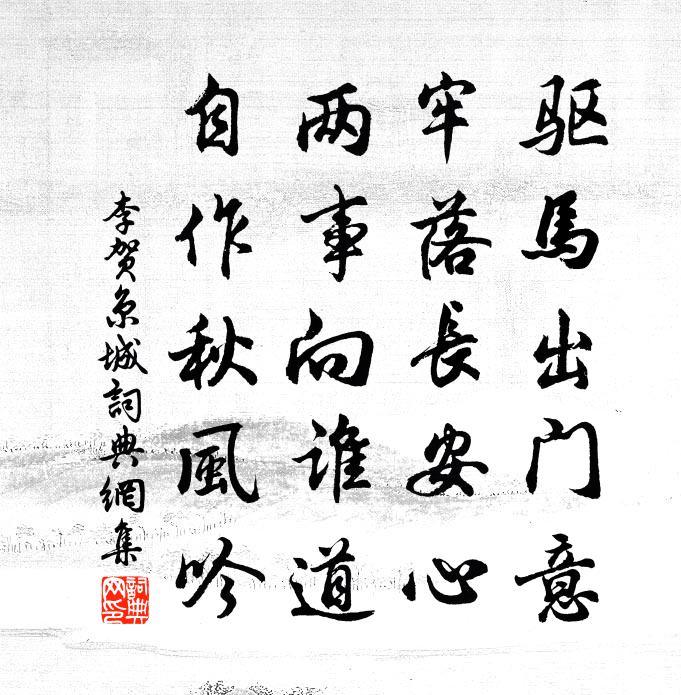 驱馬出门意
牢落長安心
两事向谁道
自作秋風吟
李贺京城詞典網集
詞典网印